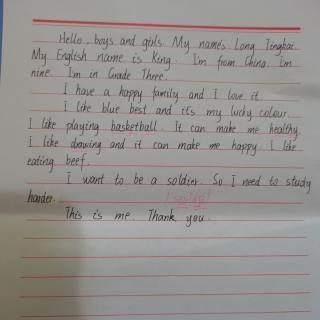 Hello, boys and girls. My name's Long Tingkai.
My English name is King. I'm from China. I'm
nine. I'm in Grade Three.
I have a happy family and I love it.
I like blue best and it's my lucky colour.
I like playing basketball. It can make me healthy.
I like drawing and it can make me happy. I like
eating beef.
I want to be a soldier. So I need to study
harder.
This is me. Thank you.